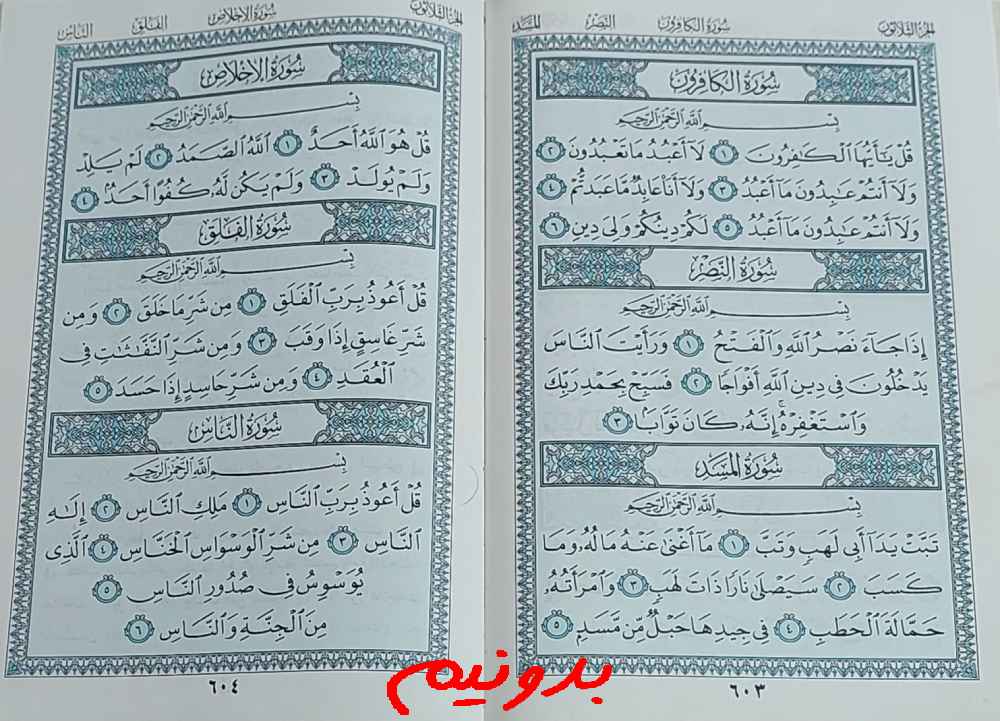 الجزء الثلاثون
سورة الكافرون
النصر
المسد
سُورَةُ الكَافِرُونَ
بِسْمِ اللَّهِ الرَّحْمَٰنِ الرَّحِيمِ
قُلْ يَٰٓأَيُّهَا ٱلْكَٰفِرُونَ ١ لَآ أَعْبُدُ مَا تَعْبُدُونَ ٢
وَلَآ أَنتُمْ عَٰبِدُونَ مَآ أَعْبُدُ ٣ وَلَآ أَنَا۠ عَابِدٌ مَّا عَبَدتُّمْ ٤
وَلَآ أَنتُمْ عَٰبِدُونَ مَآ أَعْبُدُ ٥ لَكُمْ دِينُكُمْ وَلِىَ دِينِ ٦
سُورَةُ النَّصْرِ
بِسْمِ اللَّهِ الرَّحْمَٰنِ الرَّحِيمِ
إِذَا جَآءَ نَصْرُ ٱللَّهِ وَٱلْفَتْحُ ١ وَرَأَيْتَ ٱلنَّاسَ
يَدْخُلُونَ فِى دِينِ ٱللَّهِ أَفْوَاجًا ٢ فَسَبِّحْ بِحَمْدِ رَبِّكَ
وَٱسْتَغْفِرْهُ ۚ إِنَّهُۥ كَانَ تَوَّابًۢا ٣
سُورَةُ المَسَدِ
بِسْمِ اللَّهِ الرَّحْمَٰنِ الرَّحِيمِ
تَبَّتْ يَدَآ أَبِى لَهَبٍ وَتَبَّ ١ مَآ أَغْنَىٰ عَنْهُ مَالُهُۥ وَمَا
كَسَبَ ٢ سَيَصْلَىٰ نَارًا ذَاتَ لَهَبٍ ٣ وَٱمْرَأَتُهُۥ
حَمَّالَةَ ٱلْحَطَبِ ٤ فِى جِيدِهَا حَبْلٌ مِّن مَّسَدٍۭ ٥
٦٠٣
الجزء الثلاثون
سورة الإخلاص
الفلق
الناس
سُورَةُ الإِخْلَاصِ
بِسْمِ اللَّهِ الرَّحْمَٰنِ الرَّحِيمِ
قُلْ هُوَ ٱللَّهُ أَحَدٌ ١ ٱللَّهُ ٱلصَّمَدُ ٢ لَمْ يَلِدْ
وَلَمْ يُولَدْ ٣ وَلَمْ يَكُن لَّهُۥ كُفُوًا أَحَدٌۢ ٤
سُورَةُ الفَلَقِ
بِسْمِ اللَّهِ الرَّحْمَٰنِ الرَّحِيمِ
قُلْ أَعُوذُ بِرَبِّ ٱلْفَلَقِ ١ مِن شَرِّ مَا خَلَقَ ٢ وَمِن
شَرِّ غَاسِقٍ إِذَا وَقَبَ ٣ وَمِن شَرِّ ٱلنَّفَّٰثَٰتِ فِى
ٱلْعُقَدِ ٤ وَمِن شَرِّ حَاسِدٍ إِذَا حَسَدَ ٥
سُورَةُ النَّاسِ
بِسْمِ اللَّهِ الرَّحْمَٰنِ الرَّحِيمِ
قُلْ أَعُوذُ بِرَبِّ ٱلنَّاسِ ١ مَلِكِ ٱلنَّاسِ ٢ إِلَٰهِ
ٱلنَّاسِ ٣ مِن شَرِّ ٱلْوَسْوَاسِ ٱلْخَنَّاسِ ٤ ٱلَّذِى
يُوَسْوِسُ فِى صُدُورِ ٱلنَّاسِ ٥
مِنَ ٱلْجِنَّةِ وَٱلنَّاسِ ٦
٦٠٤
بدونیم